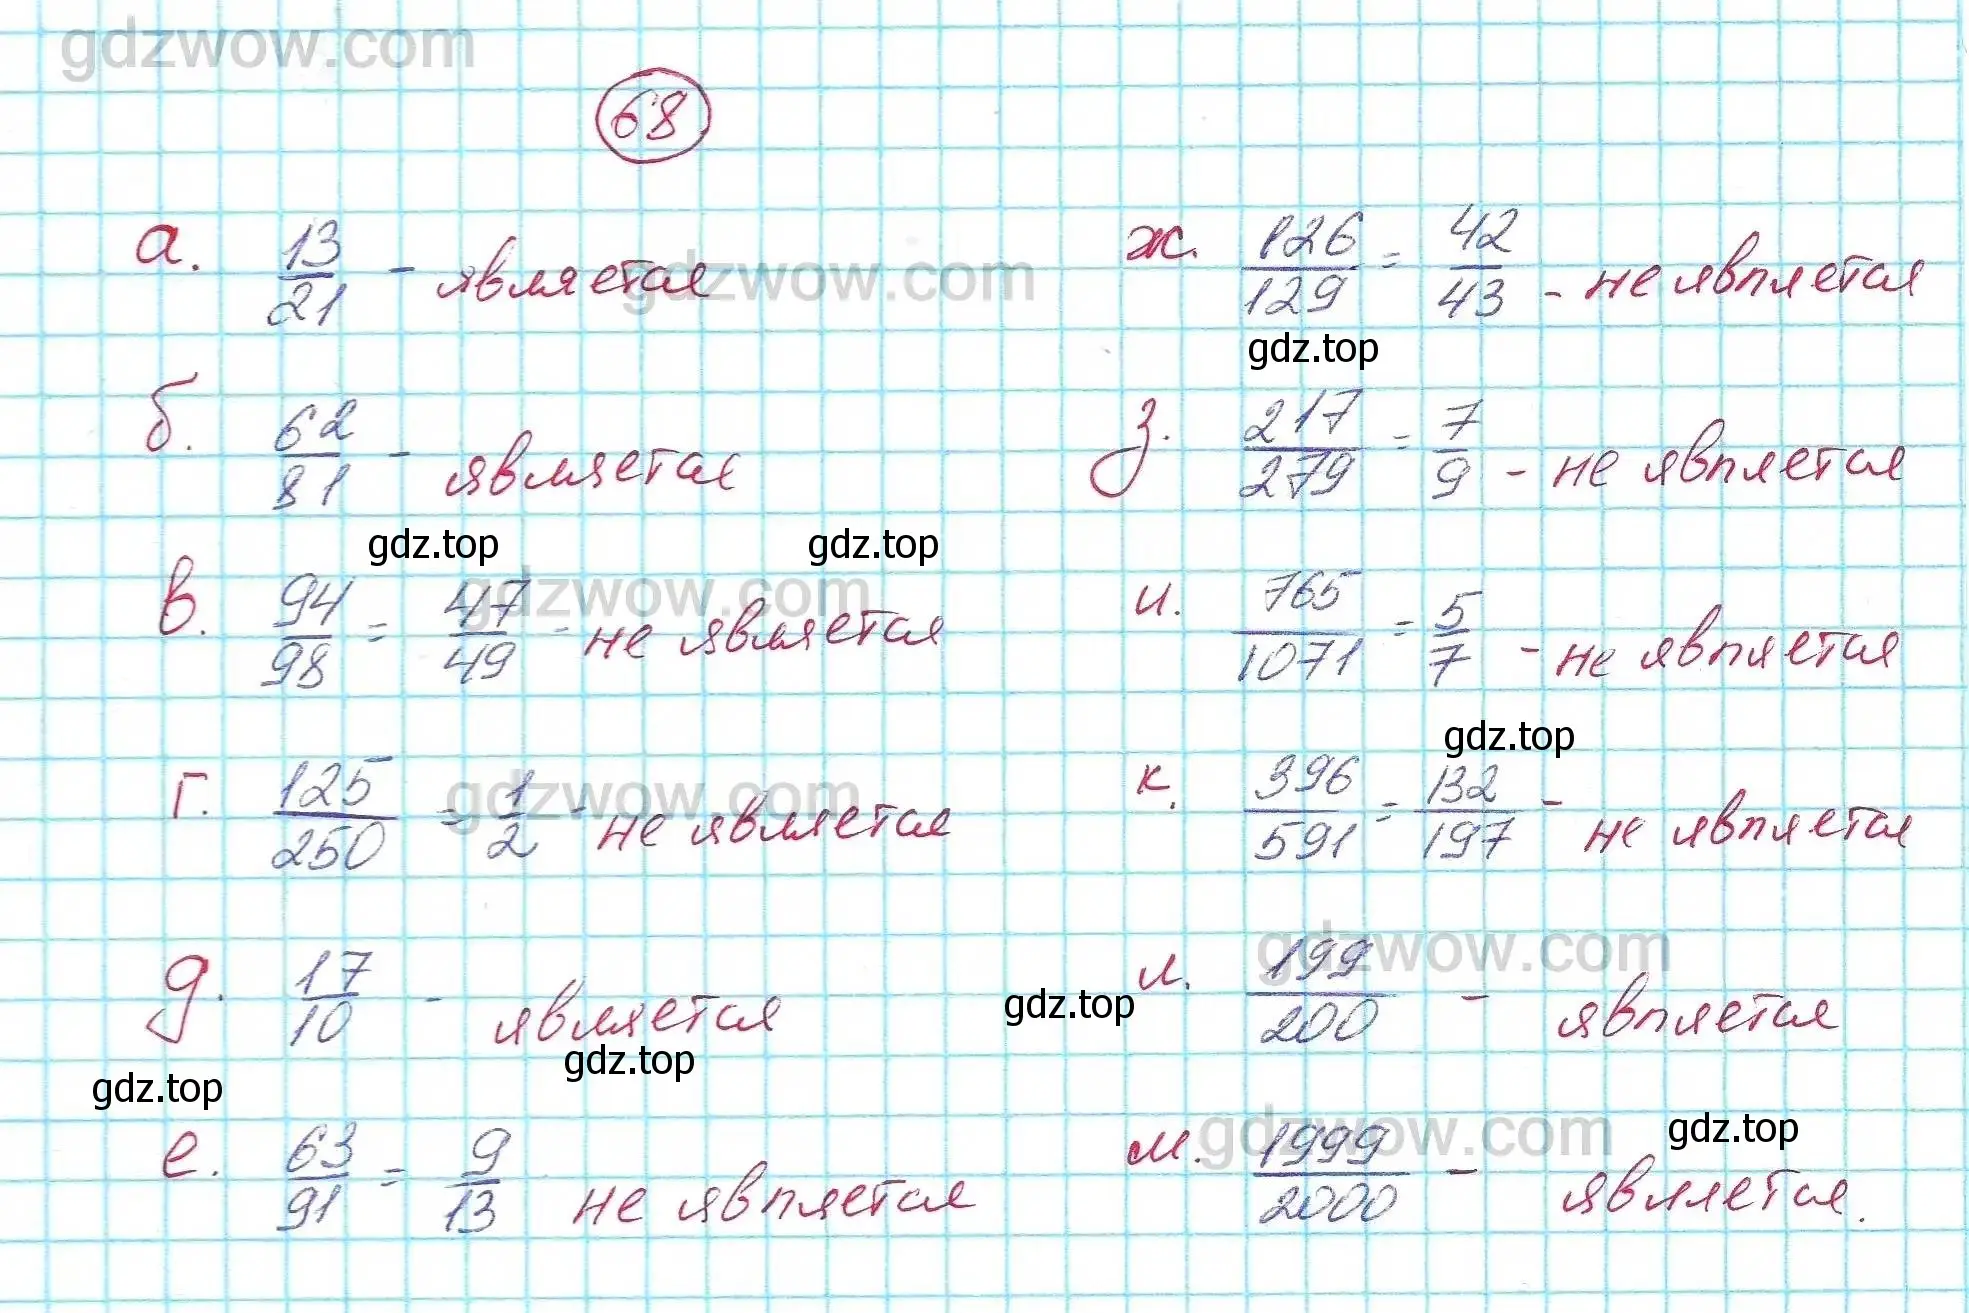 gdzwow.com
68
а. 13/21 - является
gdzwow.com
б. 62/81 - является
gdz.top
gdz.top
в. 94/98 = 47/49 - не является
gdzwow.com
г. 125/250 = 1/2 - не является
gdzwow.com
д. 17/10 - является
gdz.top
gdz.top
gdz.top
е. 63/91 = 9/13 не является
ж. 126/129 = 42/43 - не является
gdz.top
з. 217/279 = 7/9 - не является
и. 765/1071 = 5/7 - не является
gdz.top
к. 396/591 = 132/197 - не является
gdzwow.com
л. 199/200 - является
gdzwow.com
gdz.top
м. 1999/2000 - является.